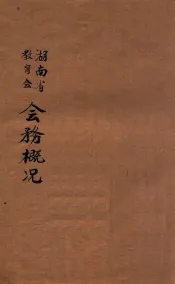 湖南省
教育会
会務概况